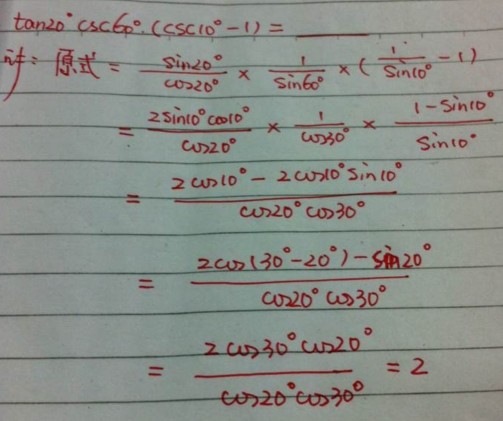 tan20° csc60°·(csc10°-1) = ____
解: 原式 = sin20°/cos20° × 1/sin60° × (1/sin10° - 1)
= 2sin10°cos10°/cos20° × 1/cos30° × 1-sin10°/sin10°
= 2cos10° - 2cos10°sin10°/cos20°cos30°
= 2cos(30°-20°) - sin20°/cos20°cos30°
= 2cos30°cos20°/cos20°cos30° = 2